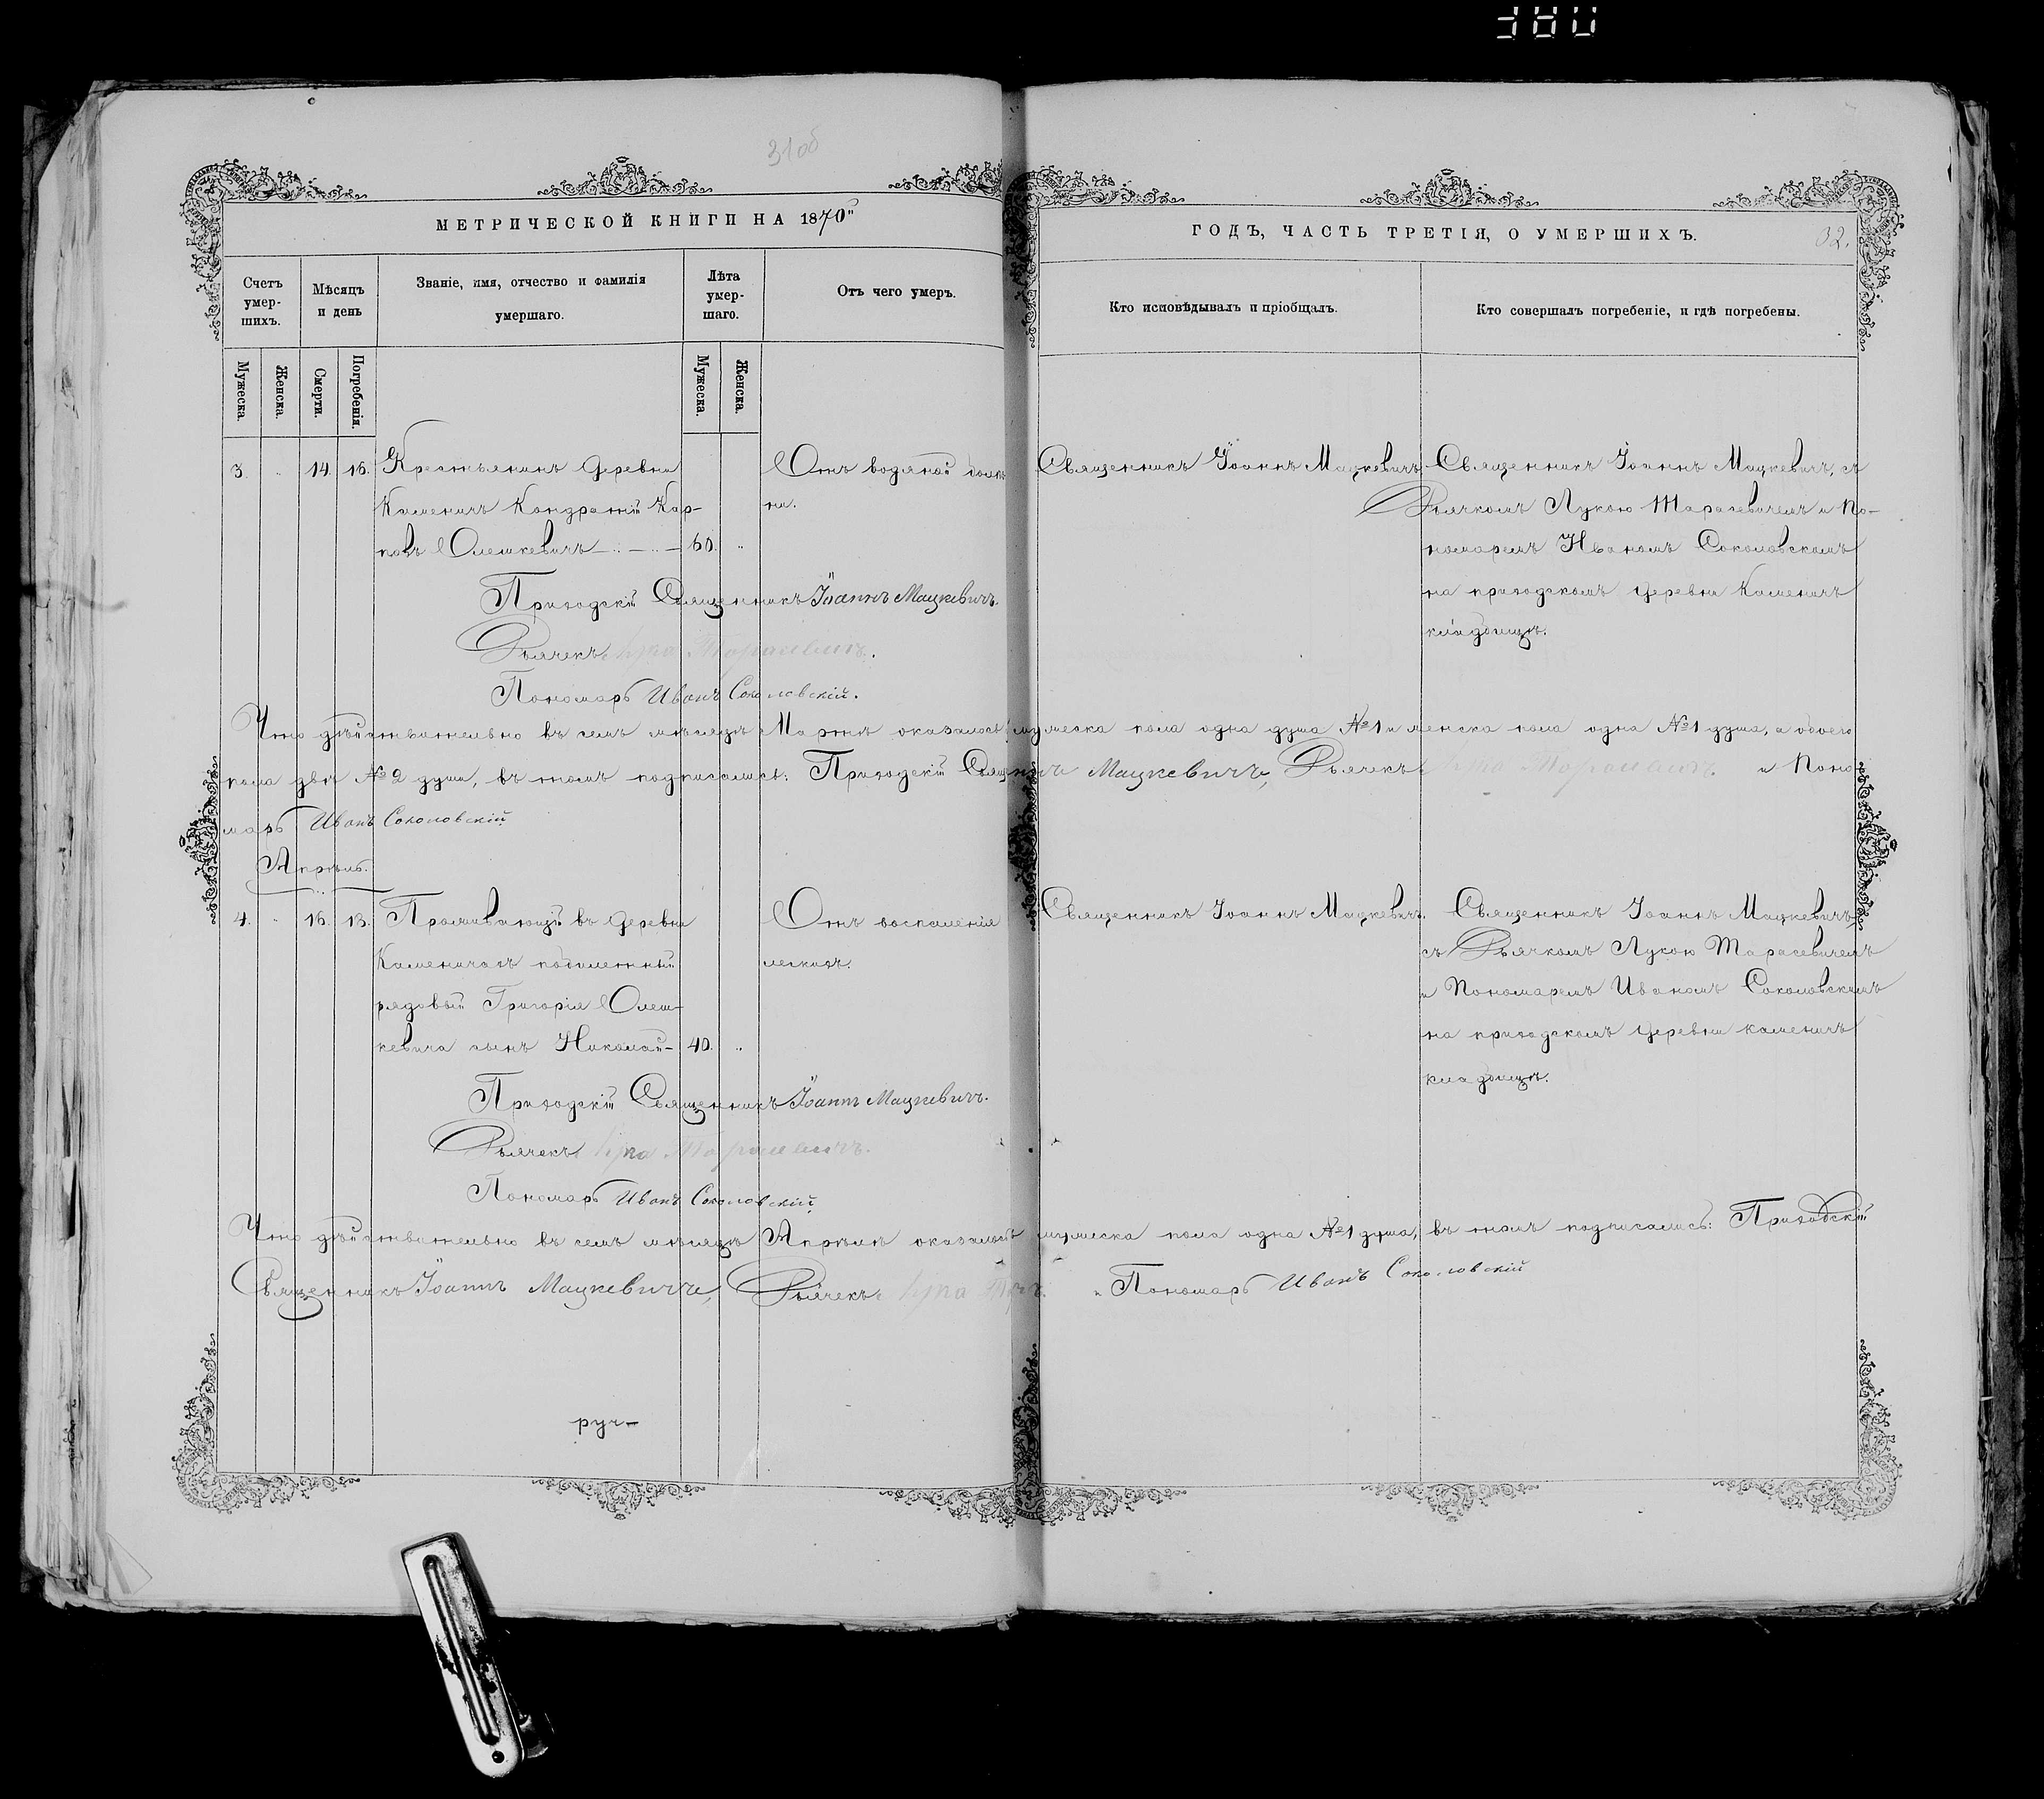 31об
МЕТРИЧЕСКОЙ КНИГИ НА 1870й
ГОДЪ, ЧАСТЬ ТРЕТІЯ, О УМЕРШИХЪ.
32.
Счетъ умер-шихъ.
Мѣсяцъ и день
Званіе, имя, отчество и фамилія умершаго.
Лѣта умер-шаго.
Отъ чего умеръ.
Кто исповѣдывалъ и пріобщалъ.
Кто совершалъ погребеніе, и гдѣ погребены.
Мужеска.
Женска.
Смерти.
Погребенія.
Мужеска.
Женска.
3. " 14. 16.
Крестьянинъ деревни
Каменичъ Кондратій Кар-
повъ Олешкевичъ 60. "
Отъ водяной
Священникъ Іоаннъ Мацкевичъ
Священникъ Іоаннъ Мацкевичъ, съ
Дьячкомъ Лукою Тарасевичемъ и По-
номаремъ Иваномъ Соколовскимъ
на приходскомъ деревни Каменичъ
кладбищѣ.
Приходскій Священникъ Іоаннъ Мацкевичъ.
Дьячекъ Лука Тарасевичъ.
Пономарь Иванъ Соколовскій.
Что дѣйствительно въ семъ мѣсяцѣ Мартѣ оказалось мужеска пола одна душа №1 и женска пола одна №1 душа, а обоего
пола двѣ №2 души, въ томъ подписались: Приходскій Священникъ Мацкевичъ, Дьячекъ Лука Тарасевичъ и Поно-
марь Иванъ Соколовскій
Апрѣль.
4. " 16. 18.
Проживающій въ деревни
Каменичахъ
рядовый Григорія Олеш-
кевича сынъ Николай 40. "
Отъ воспаленія
легкихъ.
Священникъ Іоаннъ Мацкевичъ.
Священникъ Іоаннъ Мацкевичъ,
съ Дьячкомъ Лукою Тарасевичемъ
и Пономаремъ Иваномъ Соколовскимъ
на приходскомъ деревни Каменичъ
кладбищѣ.
Приходскій Священникъ Іоаннъ Мацкевичъ.
Дьячекъ Лука Тарасевичъ.
Пономарь Иванъ Соколовскій
Что дѣйствительно въ семъ мѣсяцѣ Апрѣлѣ оказалось мужеска пола одна №1 душа, въ томъ подписались: Приходскій
Священникъ Іоаннъ Мацкевичъ, Дьячекъ Лука и Пономарь Иванъ Соколовскій
руч-